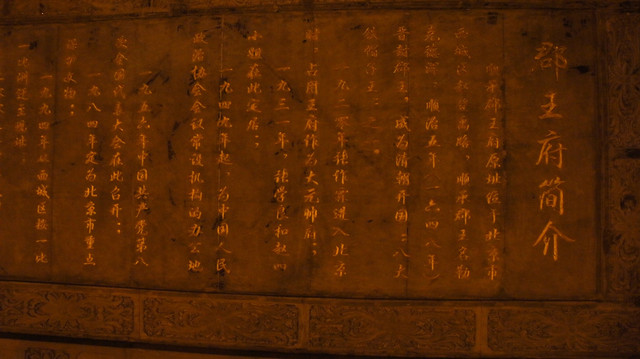 郡王府简介
顺承郡王府原址位于北京市
西城区和碧离路，顺承郡王名勒
克德浑，顺治五年（一六四八年）
晋封郡王，成为清朝开国"八大
铁帽子王"之一。
一九二零年张作霖进入北京
时，占用王府作为大元帅府；
一九三一年，张学良和赵四
小姐在此定居；
一九四九年起，为中国人民
政治协会会议常设机构的办公地
一九五六年中国共产党第八
次全国代表大会在此召开；
一九八四年定为北京市重点
保护文物；
一九九四年从西城区按一比
一比例迁至现址。